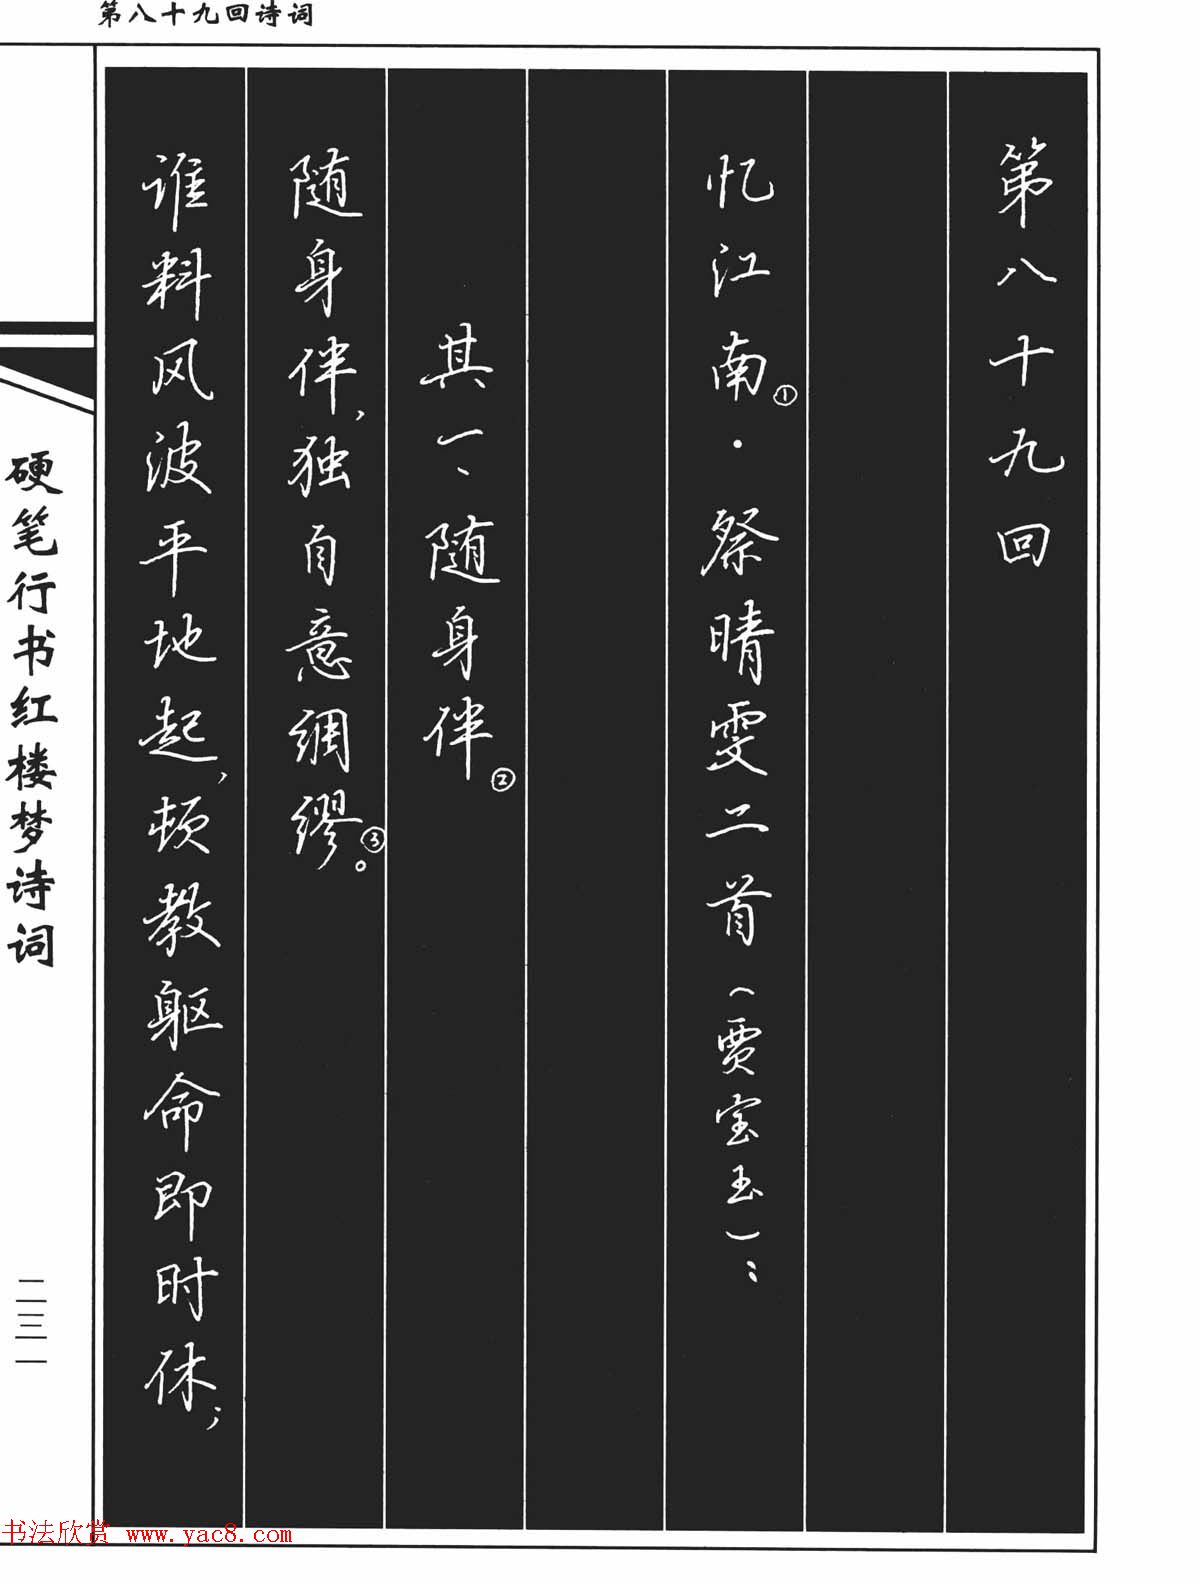 第八十九回诗词
第八十九回
忆江南①·祭晴雯二首（贾宝玉）：
其一：随身伴②
随身伴，独自意绸缪③。
谁料风波平地起，顿教躯命即时休；
硬笔行书红楼梦诗词
二三一
书法欣赏 www.yac8.com